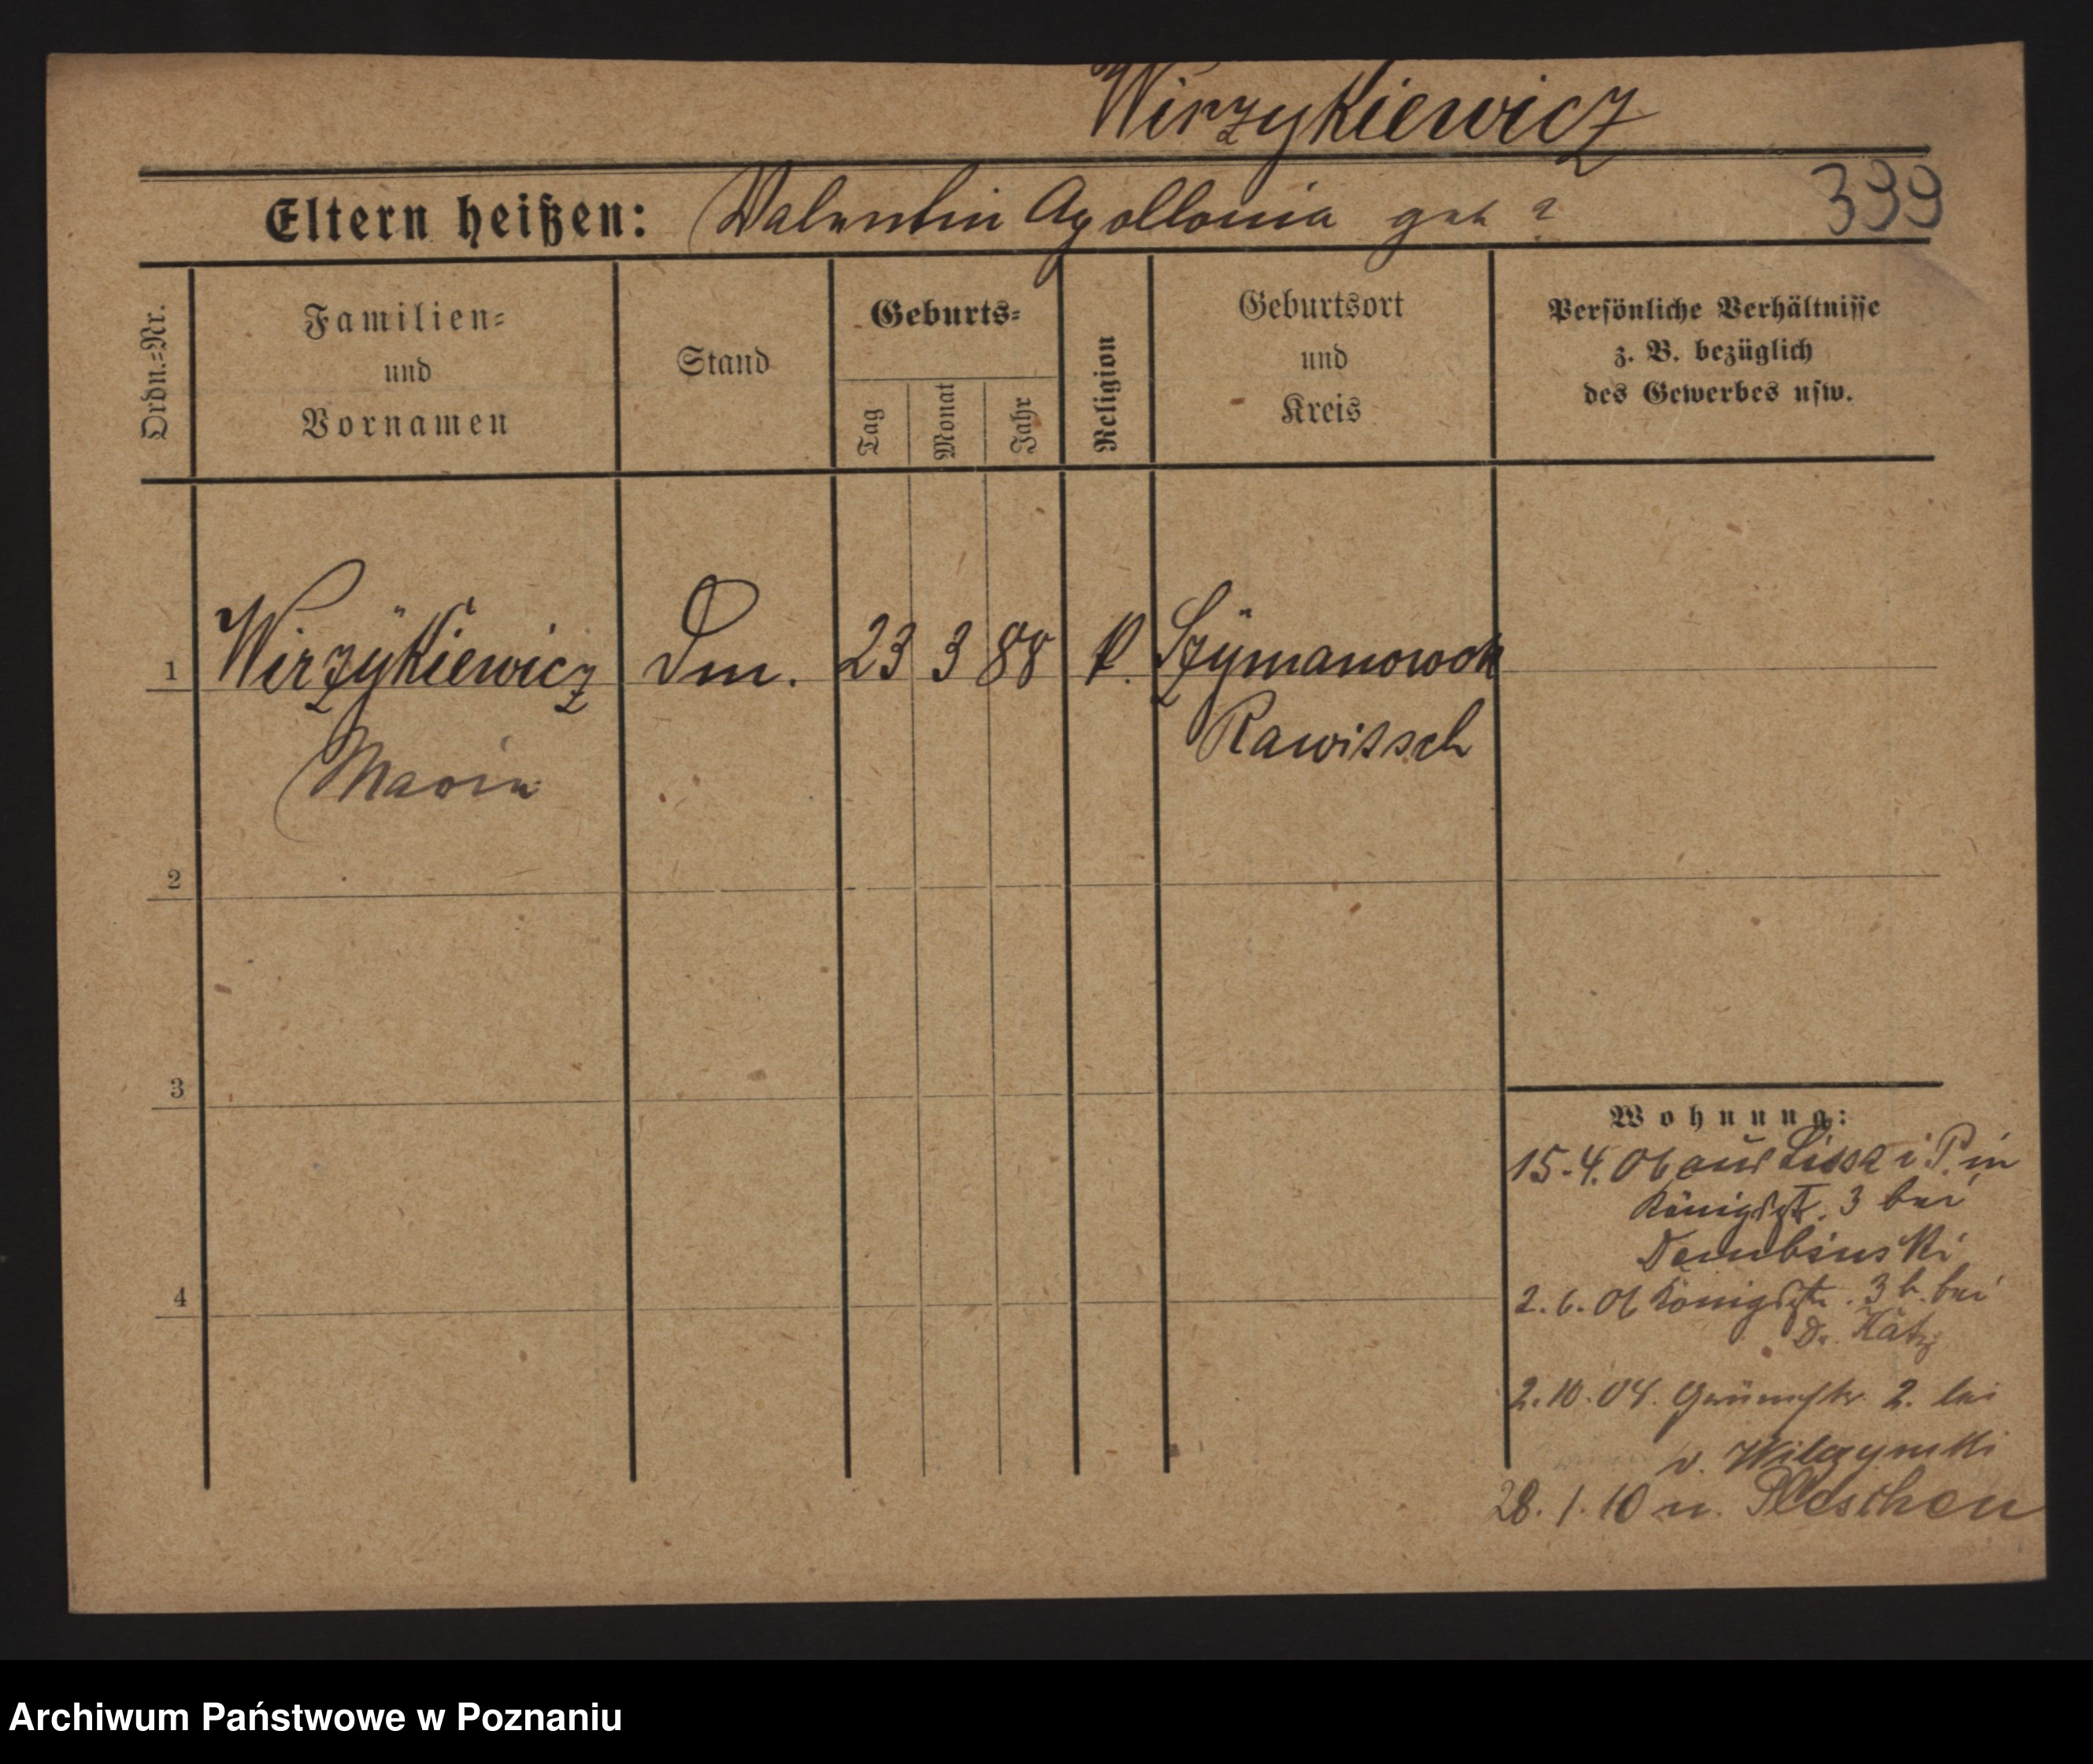 Wirzykiewicz
Eltern heißen: Valentin Apollonia geb ?
399
Ordn.=Nr.
Familien=
und
Vornamen
Stand
Geburts=
Tag
Monat
Jahr
Religion
Geburtsort
und
Kreis
Persönliche Verhältnisse
z. B. bezüglich
des Gewerbes usw.
1 Wirzÿkiewicz Dm. 23 3 88 k. Szÿmanowok
Rawitsch
Maria
2
3
4
Wohnung:
15.4.06 aus Lissa i P. in
Königstr. 3 bei
Dembinski
2.6.06 Königstr. 3 b. bei
Dr. Katz
2.10.04. 2. bei
v. Wilczynski
28.1.10 n. Pleschen
Archiwum Państwowe w Poznaniu